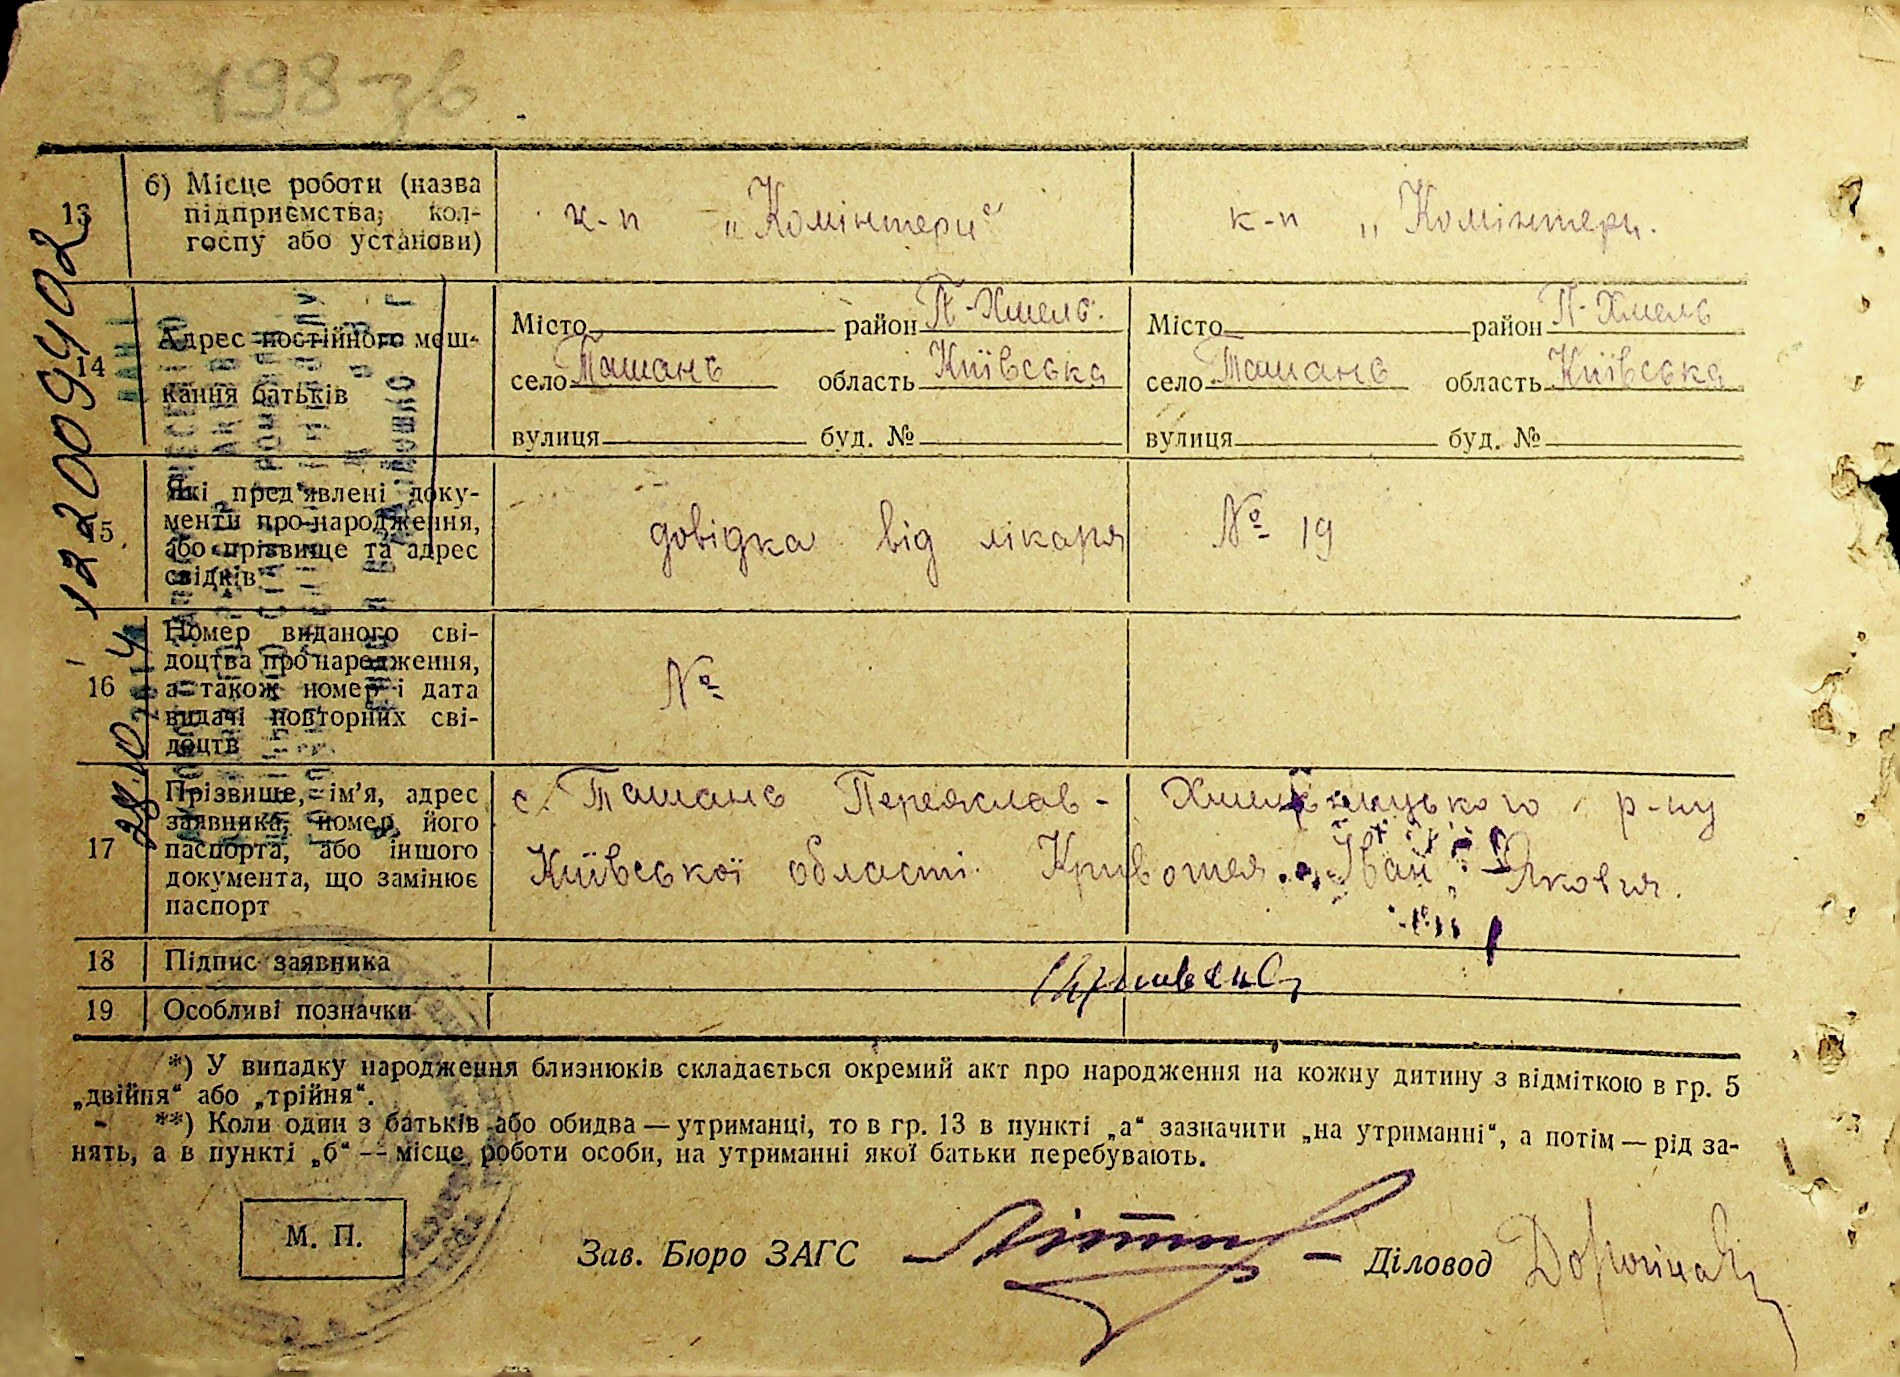 198-зв
13
б) Місце роботи (назва
підприємства, кол-
госпу або установи)
к-п „Комінтерн“
к-п „Комінтерн.
14
Адрес постійного меш-
кання батьків
Місто район П-Хмель.
село Ташань область Київська
вулиця буд. №
Місто район П-Хмель
село Ташань область Київська
вулиця буд. №
15
Які пред'явлені доку-
менти про народження,
або прізвище та адрес
свідків
довідка від лікаря № 19
16
Номер виданого сві-
доцтва про народження,
а також номер і дата
видачі повторних сві-
доцтв
№
17
Прізвище, ім'я, адрес
заявника, номер його
паспорта, або іншого
документа, що замінює
паспорт
с. Ташань Переяслав-Хмельницького р-ну
Київської області. Іван
18 Підпис заявника
19 Особливі позначки
*) У випадку народження близнюків складається окремий акт про народження на кожну дитину з відміткою в гр. 5
„двійня“ або „трійня“.
**) Коли один з батьків або обидва — утриманці, то в гр. 13 в пункті „а“ зазначити „на утриманні“, а потім — рід за-
нять, а в пункті „б“ — місце роботи особи, на утриманні якої батьки перебувають.
М. П.
Зав. Бюро ЗАГС
Діловод
1220099402